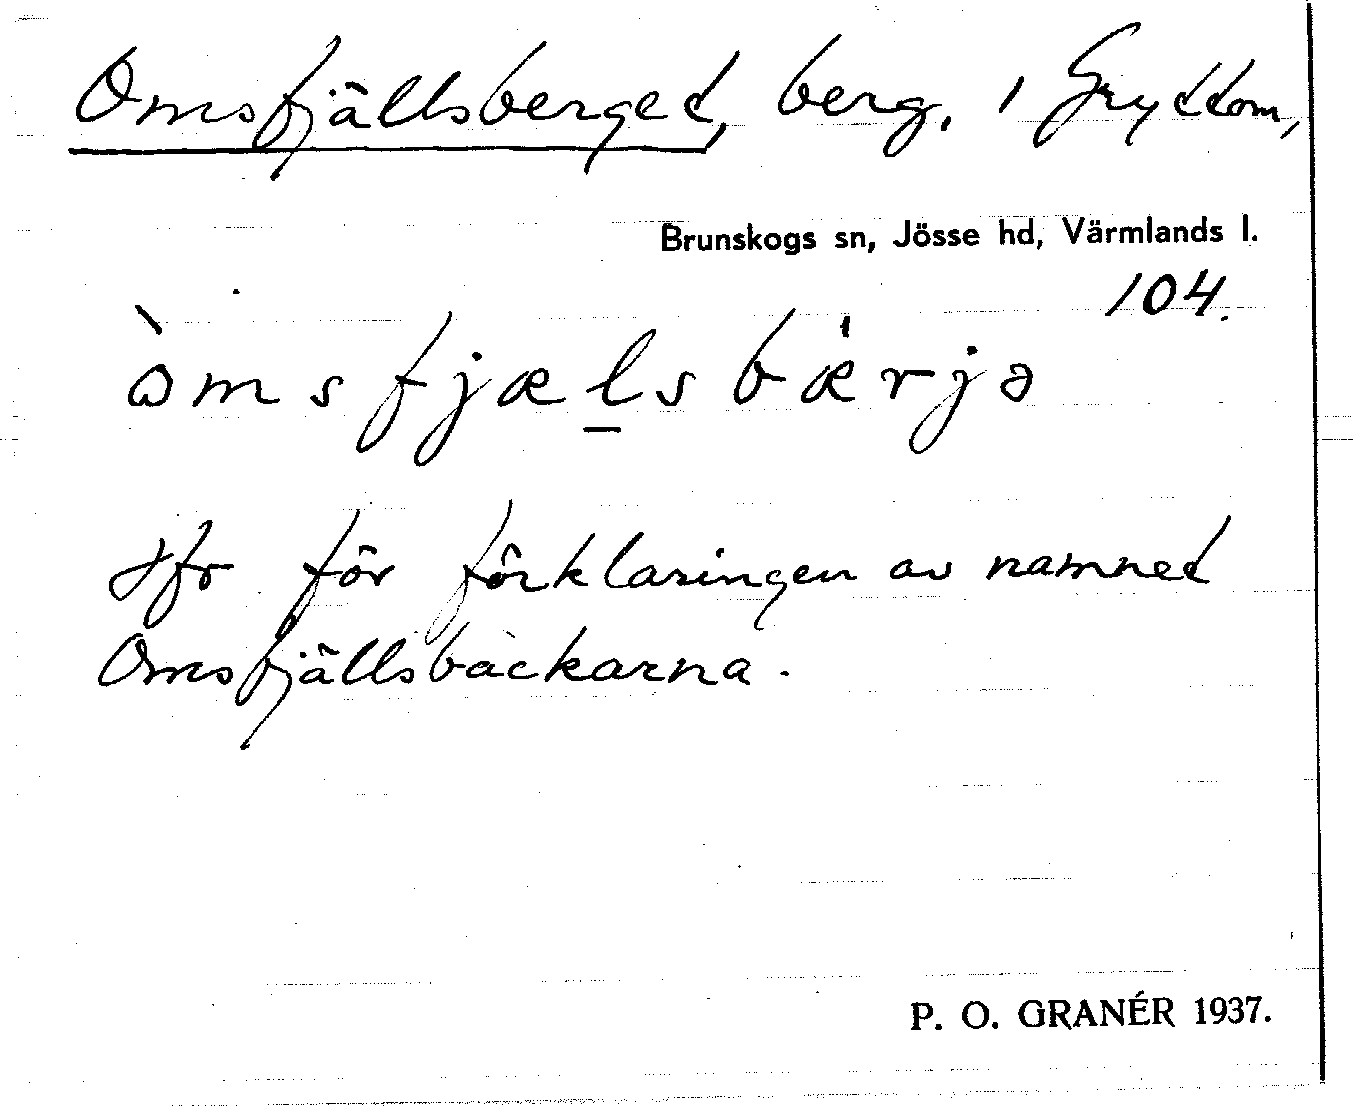 Omsfjällsberget, berg, i Gryttom,
Brunskogs sn, Jösse hd, Värmlands l.
104.
òmsfjælsbærjə
Jfr för förklaringen av namnet
Omsfjällsbäckarna.
P. O. GRANÉR 1937.